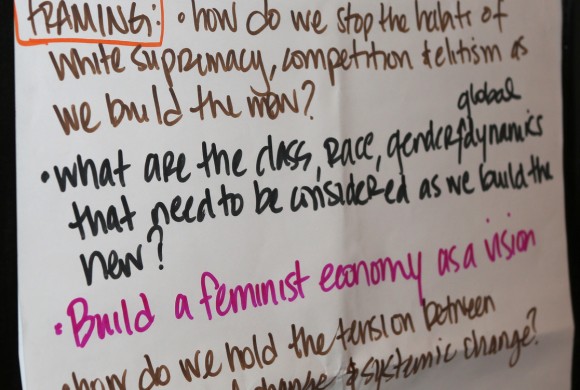 FRAMING: • how do we stop the habits of
white supremacy, competition & elitism as
we build the new?
global
• what are the class, race, gender, dynamics
that need to be considered as we build the
new?
• Build a feminist economy as a vision
• how do we hold the tension between
change & systemic change?